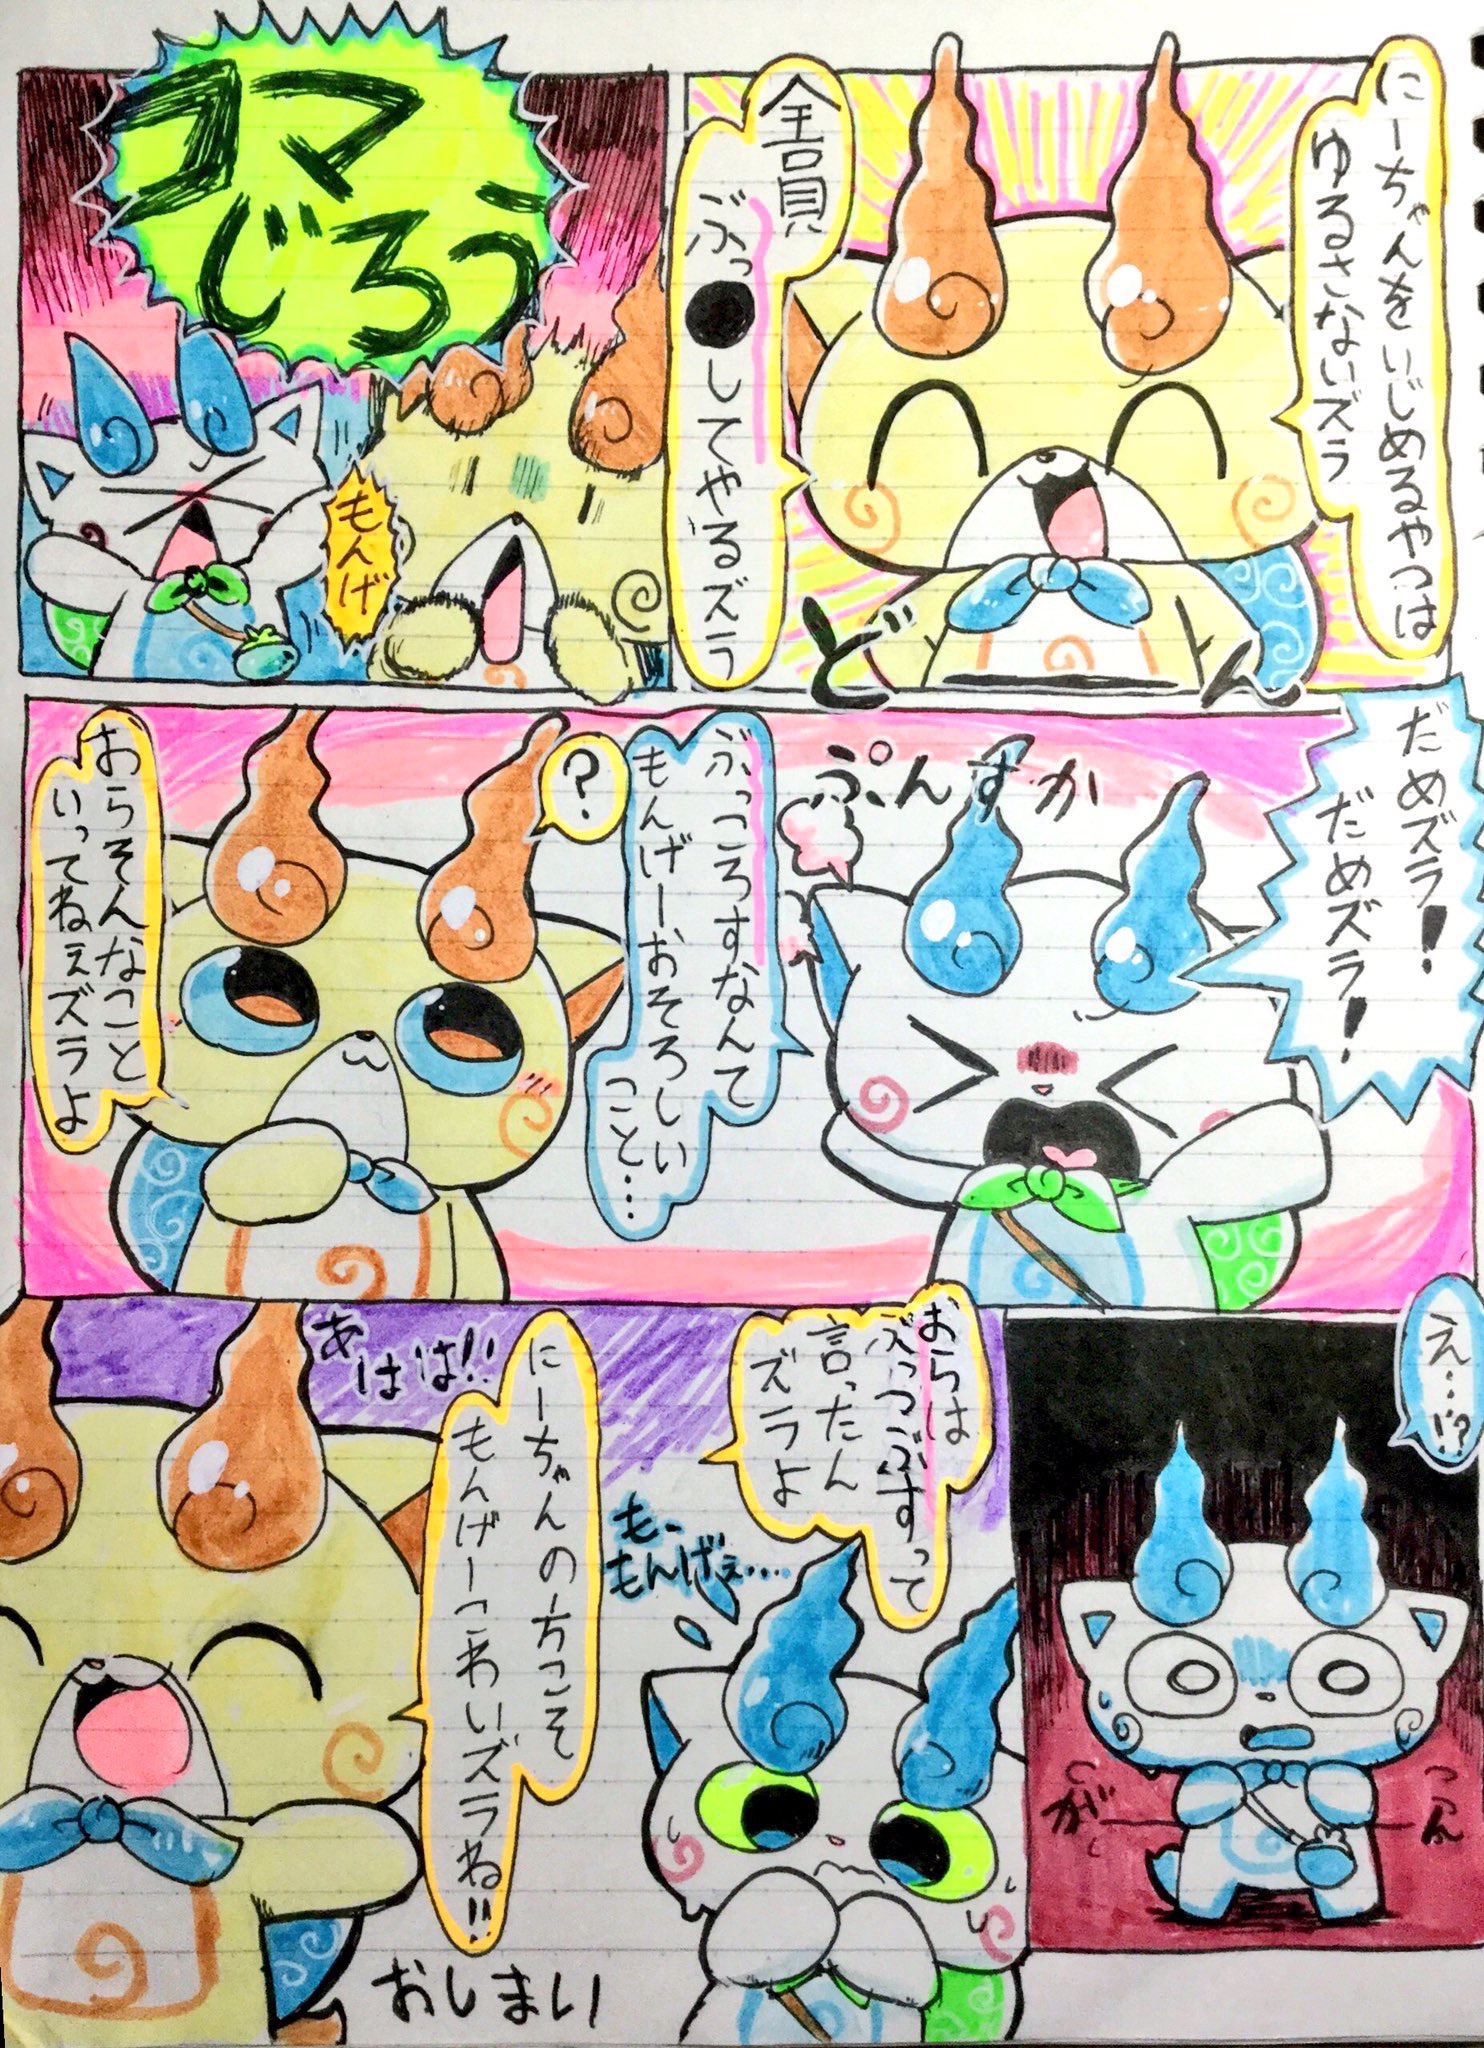 にーちゃんをいじめるやつは
ゆるさないズラ
全員
ぶっ●してやるズラ
どん
コマ
じろう
もんげ
だめズラ!
だめズラ!
ぷんすか
ぶっころすなんて
もんげーおそろしい
こと…
?
おらそんなこと
いってねぇズラよ
え…!?
がーーん
おらは
ぶっつぶすって
言ったん
ズラよ
も、
もんげぇ…
にーちゃんの方こそ
もんげーこわいズラね!!
あはは!!
おしまい